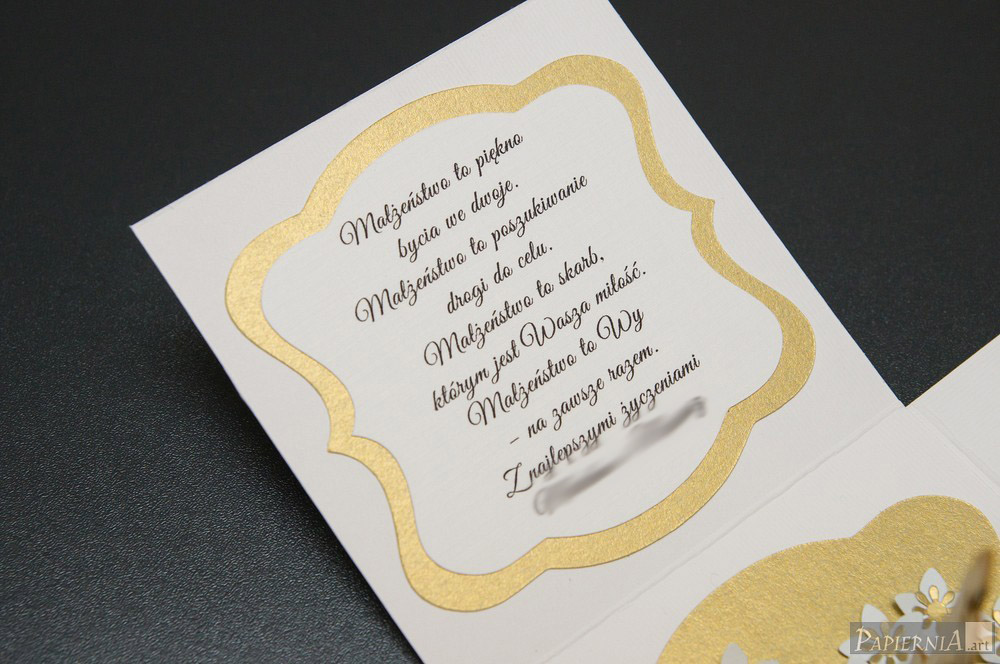 Małżeństwo to piękno
bycia we dwoje.
Małżeństwo to poszukiwanie
drogi do celu.
Małżeństwo to skarb,
którym jest Wasza miłość.
Małżeństwo to Wy
– na zawsze razem.
Znajlepszymi życzeniami
PAPIERNIA.art